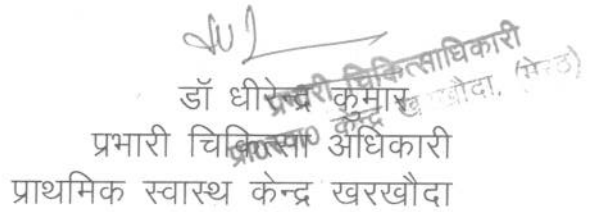 डॉ धीरेन्द्र कुमार
प्रभारी चिकित्सा अधिकारी
प्राथमिक स्वास्थ केन्द्र खरखौदा
प्रभारी चिकित्साधिकारी
केन्द्र